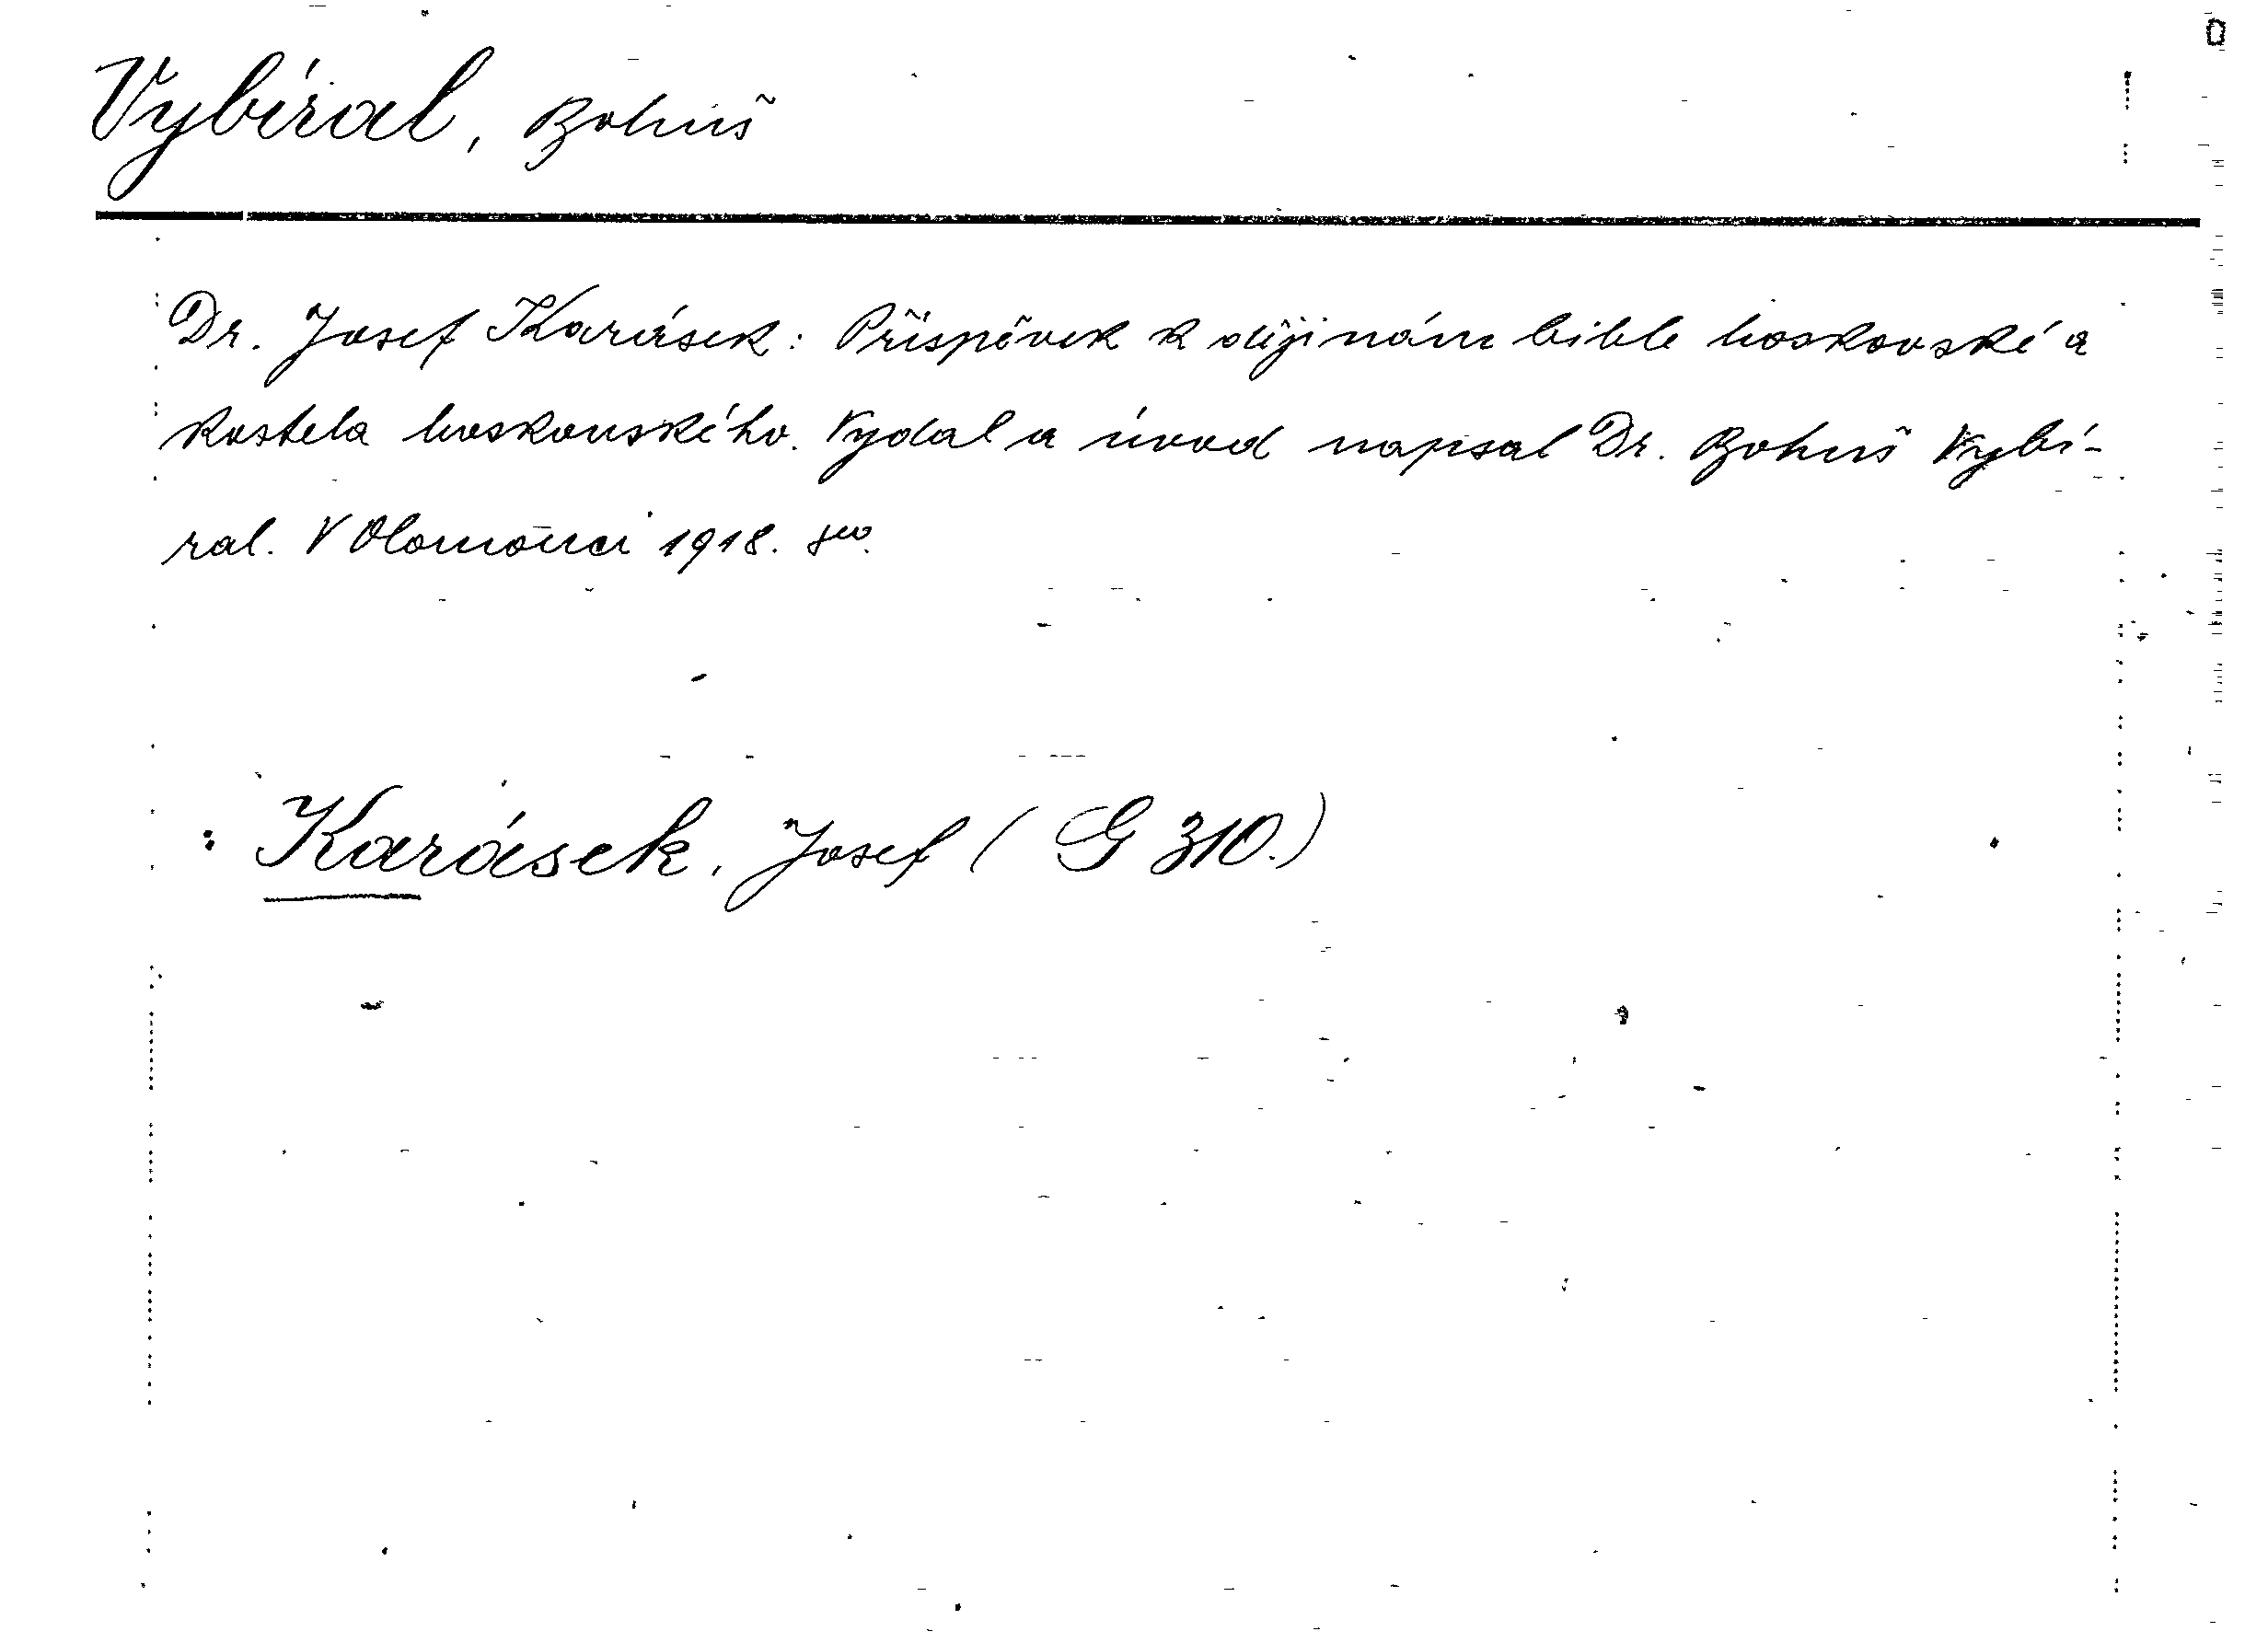 Vybíral, Bohuš
Dr. Josef Karásek: Příspěvek k dějinám bible boskovské a
kostela boskovského. Vydal a úvod napsal Dr. Bohuš Vybí-
ral. V Olomouci 1918. 8vo.
Karásek, Josef (G 310.)